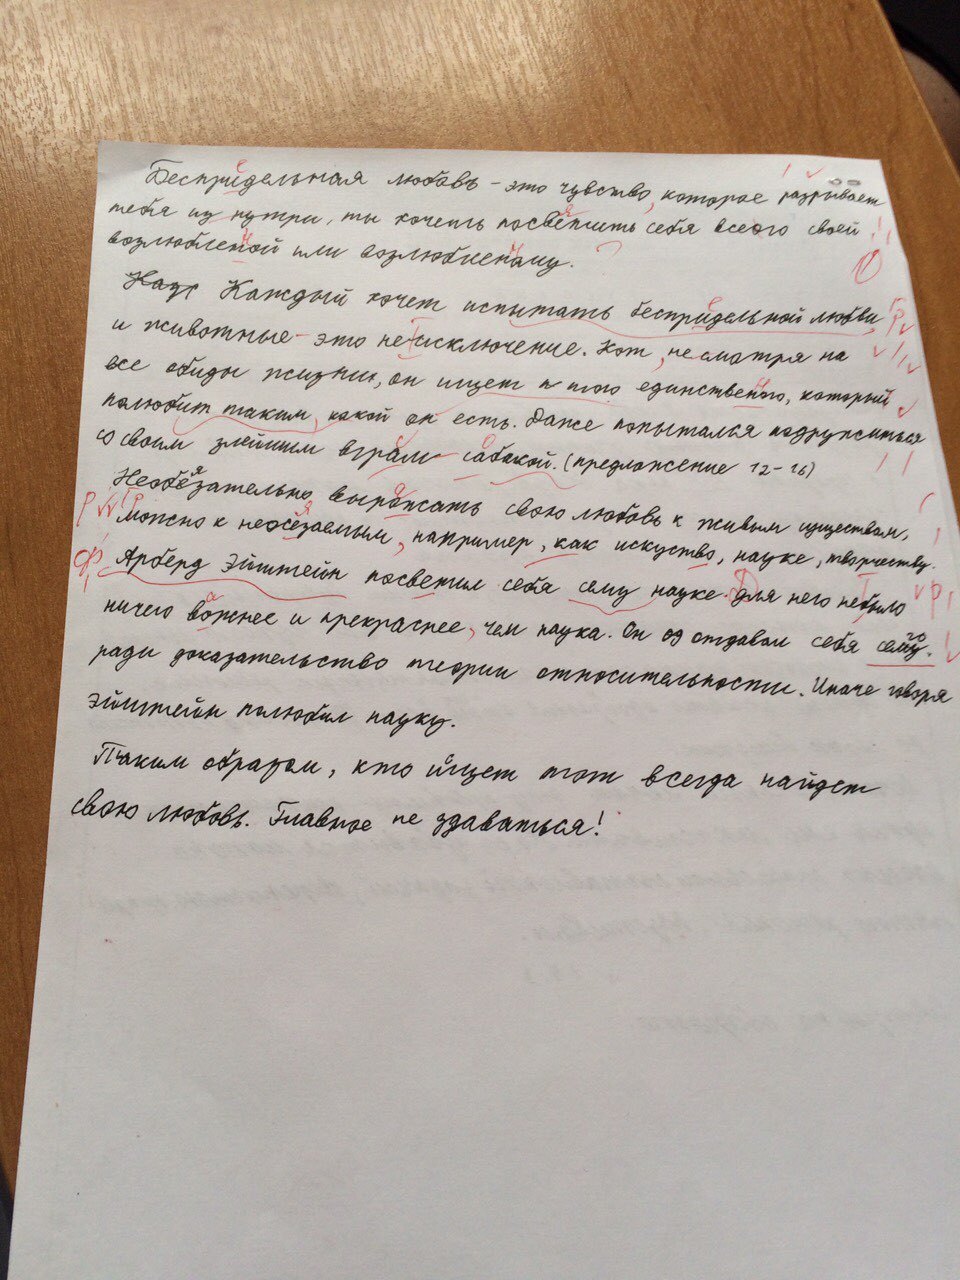 Беспридельная любовь - это чувство, которое разрывает
тебя из нутри, ты хочешь посветить себя всего своей
возлюбленой или возлюбленому.
Каждый хочет испытать беспридельной любви,
и животные - это не исключение. Кот, не смотря на
все обиды жизни, он ищет того единственого, который
полюбит таким, какой он есть. Даже попытался подружиться
со своим злейшим врагом сабакой. (предложение 12-16)
Необезательно выражать свою любовь к живым существам,
можно к неосезаемым, например, как искуство, науке, творчеству.
Арберд Эйштейн посветил себя сему науке. Для него небыло
ничего важнее и прекраснее, чем наука. Он отдавал себя сему.
ради доказательство теории относительности. Иначе говоря
Эйштейн полюбил науку.
Таким образом, кто ищет тот всегда найдет
свою любовь. Главное не здаваться!